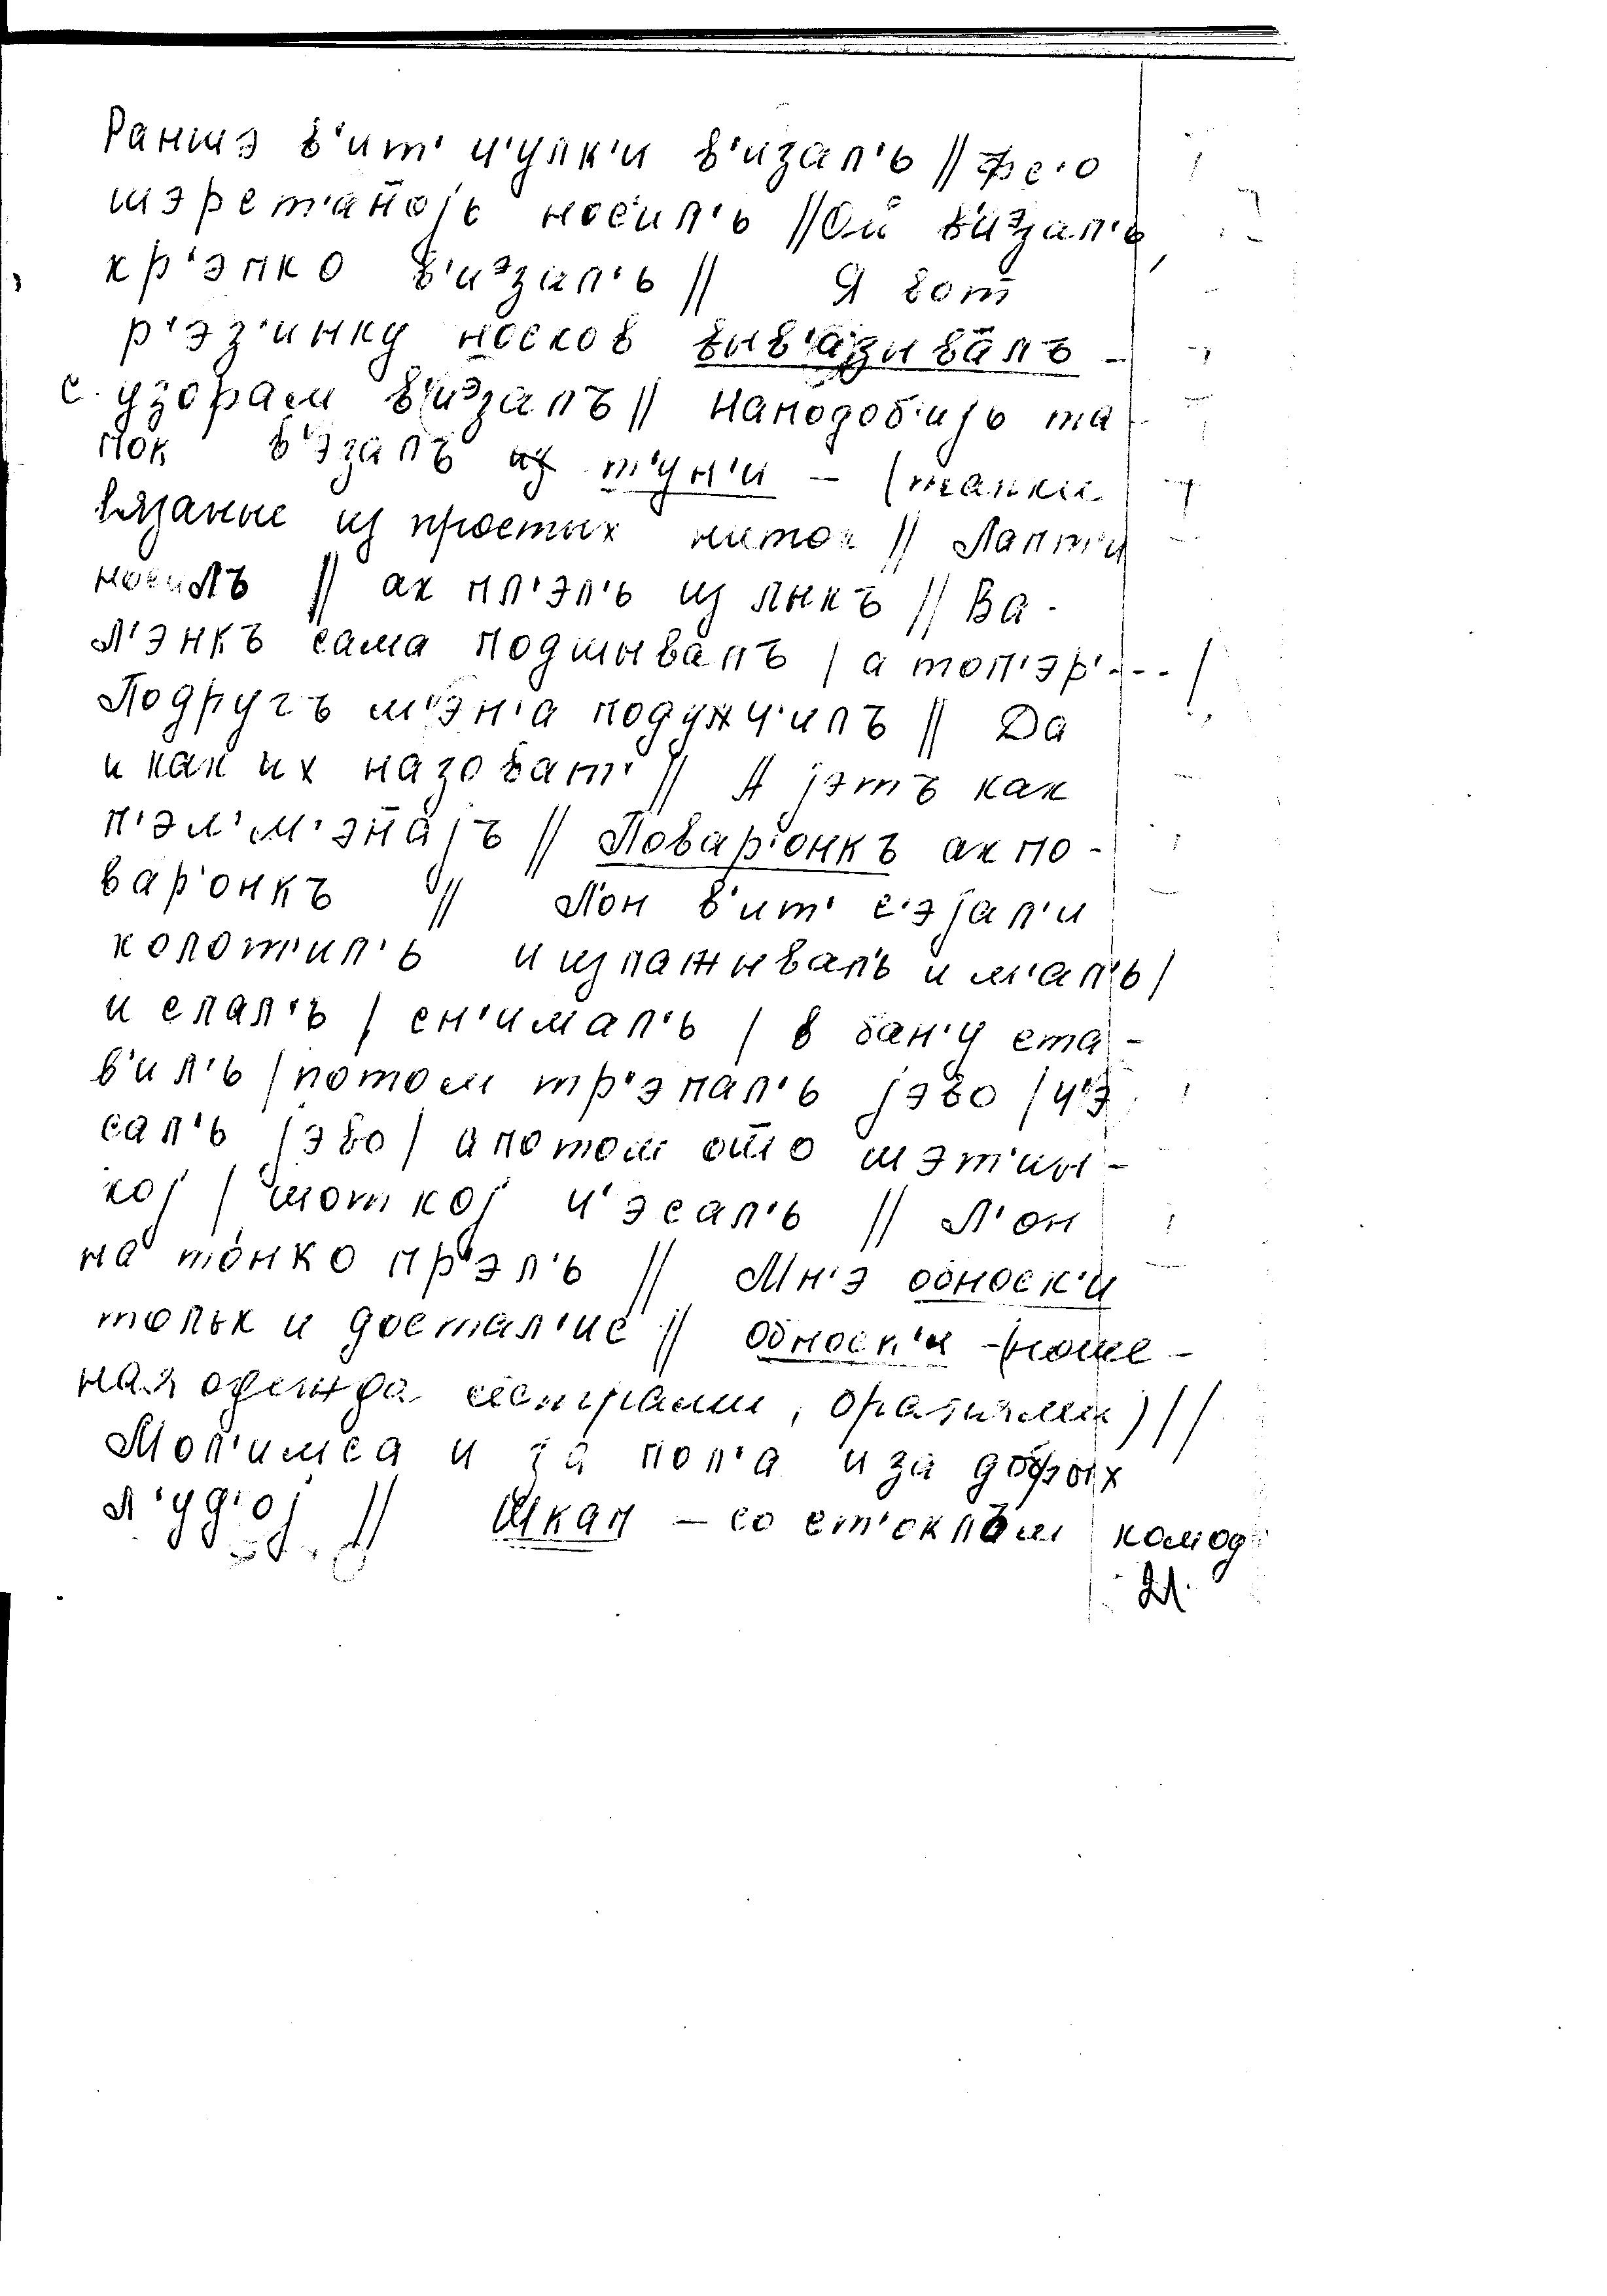 Раншэ в'ит' ч'улк'и в'изал'ь // фс'о
шэрст'ан̄ојь нос'ил'ь // Ой в'иэзал'ь,
кр'эпко в'иэзал'ь // Я вот
р'эз'инку носков выв'азывалъ -
с узорам в'иэзалъ // Наподоб'иjь та
пок в'эзалъ т'ун'и - (тапки
вязаные из простых ниток // Лапт'и
нос'илъ // ак пл'эл'ь из лыкъ // Ва -
л'энкъ сама подшывалъ / а топ'эр' --- /
Подругъ м'эн'а подуч'илъ // Да
и как их назоват' // А јэтъ как
п'эл'м'эн̄ајъ // Повар'онкъ ак по -
вар'онкъ // Л'он в'ит' с'эјал'и
колот'ил'ь и излажывал'ь и м'ал'ь /
и слал'ь / сн'имал'ь / в бан'у ста -
в'ил'ь / потом тр'эпал'ь јэво / ч'э
сал'ь јэво / а потом ото шэт'ин -
кој / шоткој ч'эсал'ь // Л'он
на тонко пр'эл'ь // Мн'э обноск'и
тольк и достал'ис // обноск'и - (ноше -
ная одежда сестрами, братьями) //
Мол'имса и за пол'а и за добрых
л'уд'ој // Шкап - со ст'окл̄ъм комод
21.